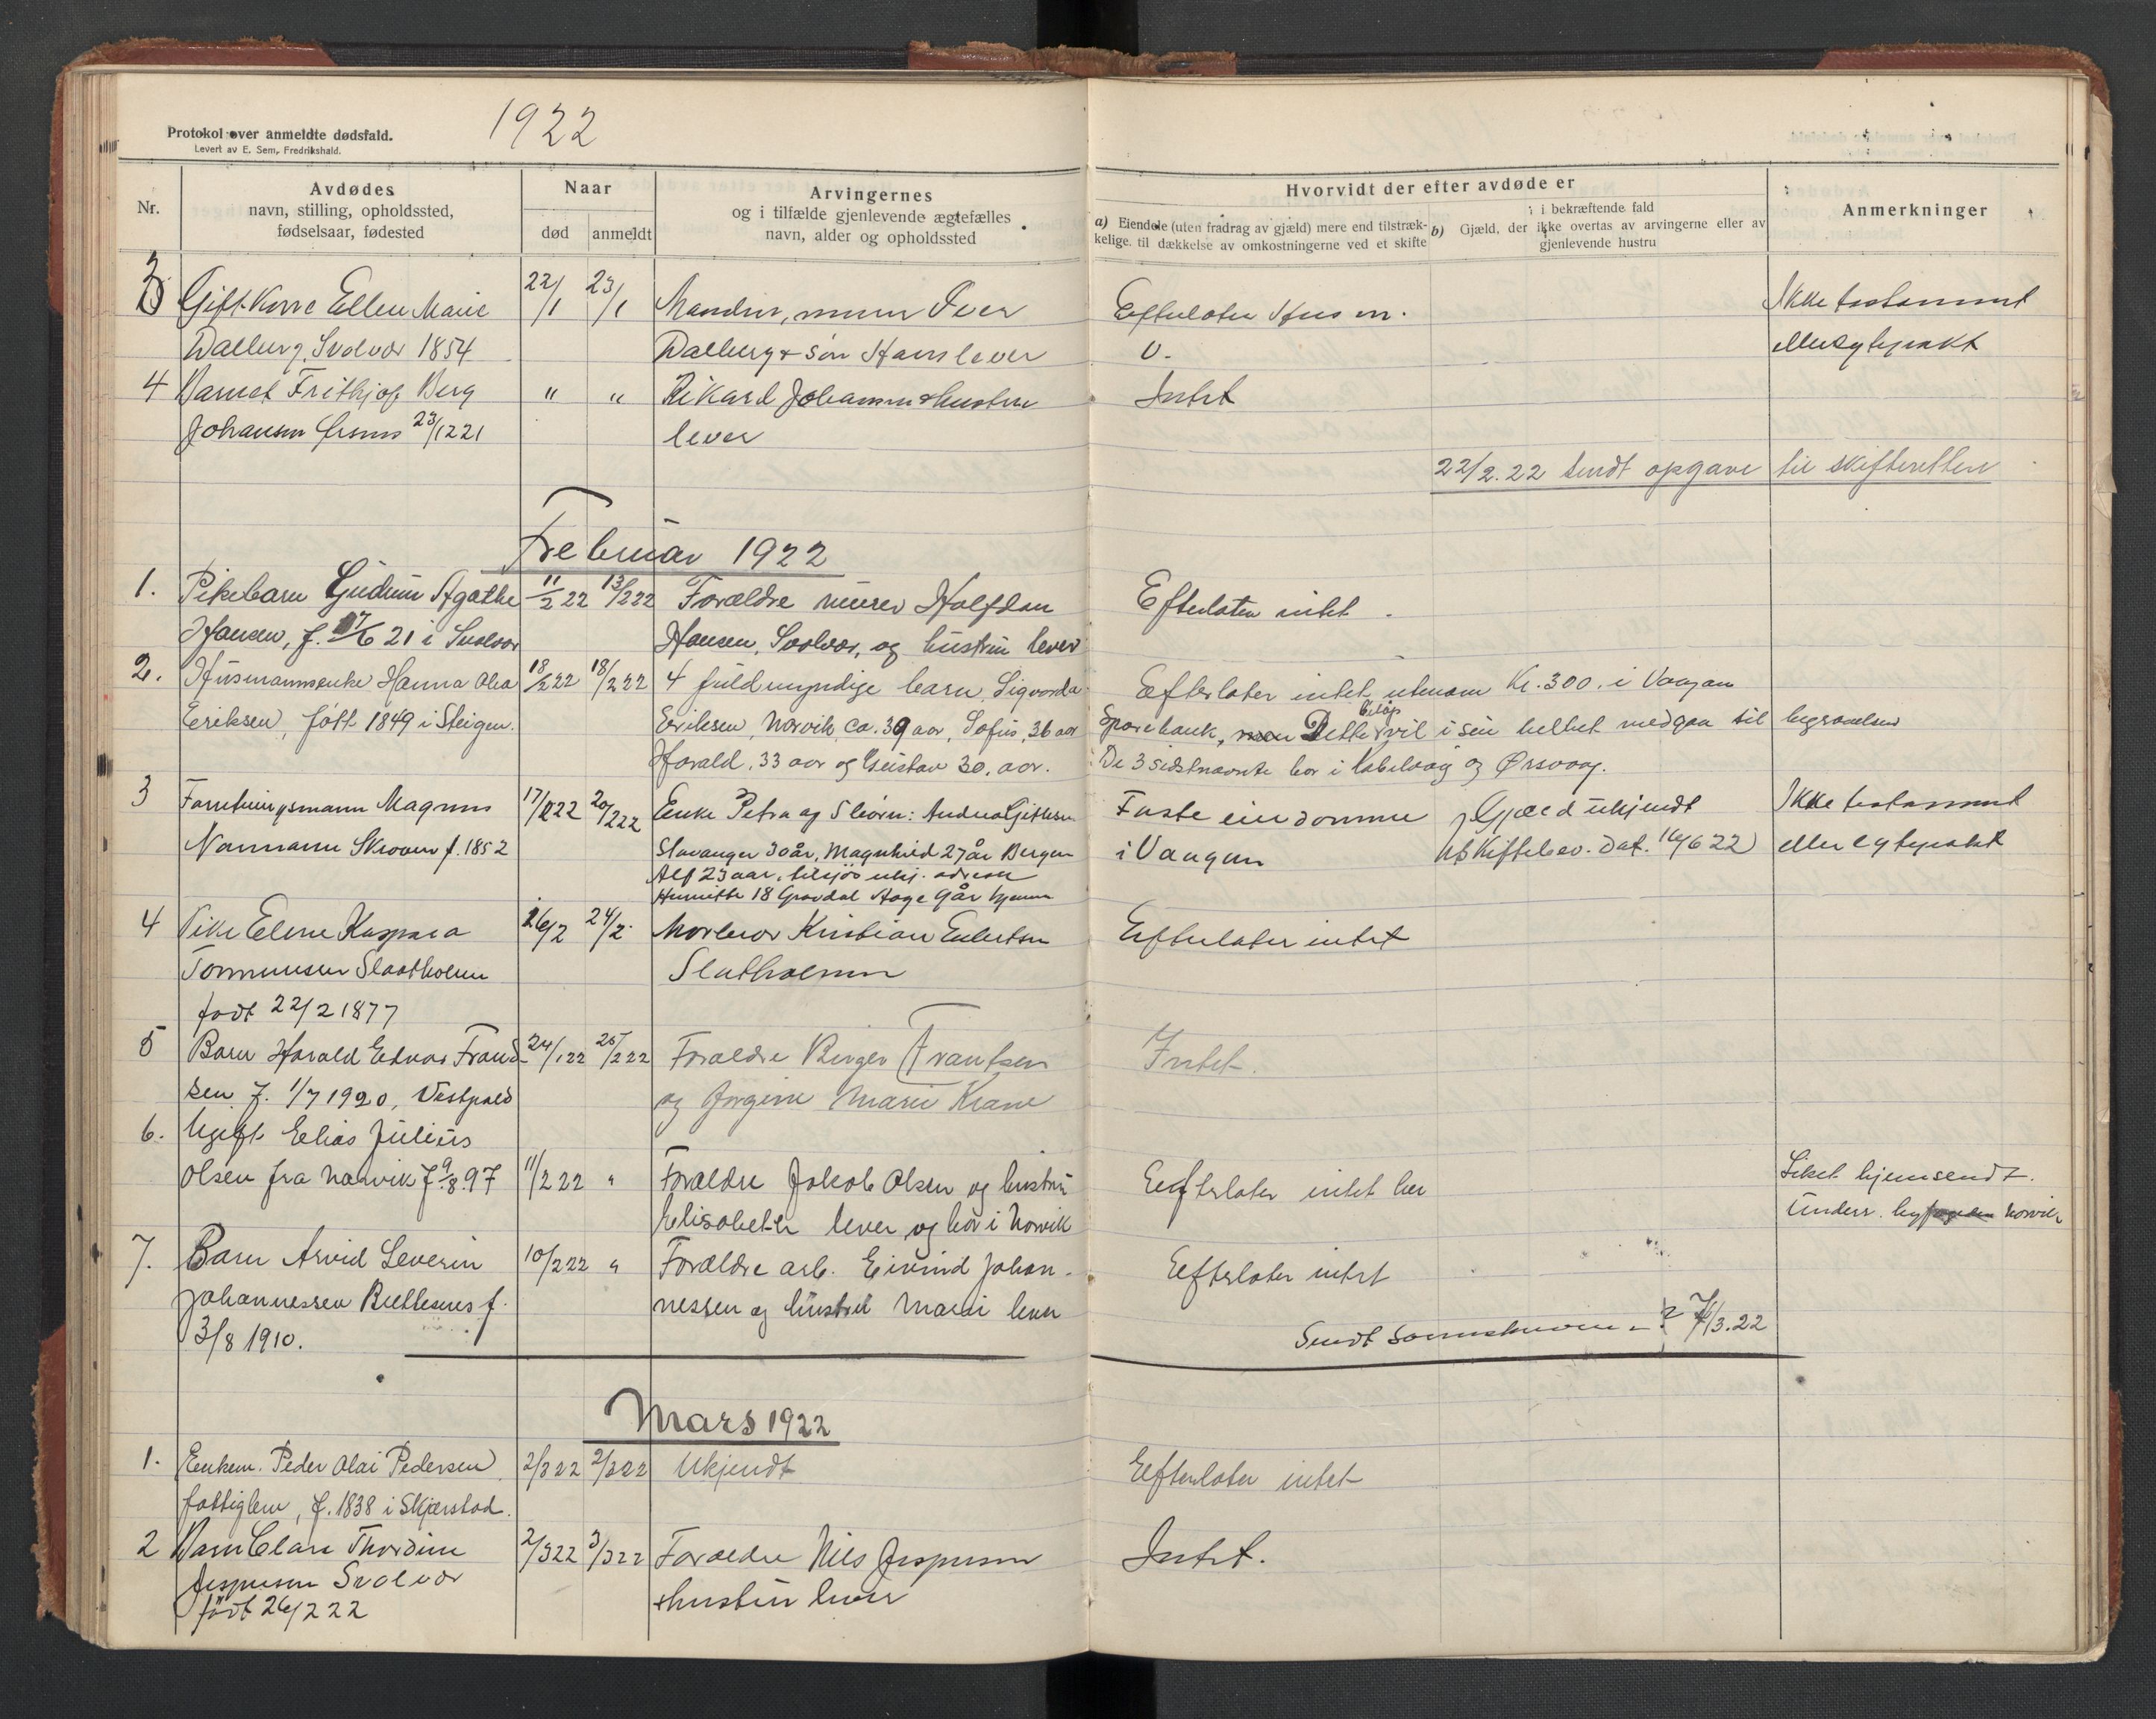 1922
Protokol over anmeldte dødsfald.
Levert av E. Sem, Fredrikshald.
Nr.
Avdødes
navn, stilling, opholdssted,
fødselsaar, fødested
Naar
død
anmeldt
Arvingernes
og i tilfælde gjenlevende ægtefælles
navn, alder og opholdssted
Hvorvidt der efter avdøde er
a) Eiendele (uten fradrag av gjæld) mere end tilstræk-
kelige til dækkelse av omkostningerne ved et skifte
b) i bekræftende fald
Gjæld, der ikke overtas av arvingerne eller av
gjenlevende hustru
Anmerkninger
3 Gift Kone Ellen Marie 22/1 23/1 Manden, murer Peer Efterlater Hus m. Ikke testamente
Dalberg, Svolvær 1854 Dalberg & søn Hans lever v. eller egtepakt
4 Barnet Frithjof Berg " " Rikard Johansen & hustru Intet
Johansen Ørsnes 23/12 21 lever
22/2.22 sendt opgave til skifteretten
Februar 1922
1. Pikebarn Gudrun Agathe 11/2 22 13/2 22 Forældre murer Halfdan Efterlater intet.
Hansen, f. 17/6 21 i Svolvær Hansen, Svolvær, og hustru lever
2. Husmannsenke Hanna Olea 18/2 22 18/2 22 4 fuldmyndige barn, Sigvarda Efterlater intet utenom Kr. 300. i Vaagan
Eriksen, født 1849 i Steigen. Eriksen, Narvik ca. 39 aar, Sofus, 36 aar Sparebank, men Dette beløp vil i sin helhet medgaa til begravelsen
Harald, 33 aar og Gustav 30. aar. De 3 sidstnævnte bor i Kabelvaag og Ørsvaag.
3 Forretningsmann Magnus 17/2 22 20/2 22 Enke Petra og 5 børn: Andrea Gjertsen Faste eiendomme Gjæld ukjendt Ikke testament
Normann Skroven f. 1852 Stavanger 30 år, Magnhild 27 år Bergen i Vaagan Uskiftebev. dat. 16/6 22 eller egtepakt
Alf 23 aar, tilsjøs ukj. adresse
18 Gravdal Aage 9 år hjemme
4 Pike Elene Kaspara 26/2 24/2 Morbror Kristian Eilertsen Efterlater intet
Tommensen Slaatholmen Slatholmen
født 22/2 1877
5 Barn Harald Edvar Frand- 24/1 22 25/2 22 Forældre Birger Frantsen Intet.
sen f. 1/7 1920, Vestpold og Jørgine Marie Krane
6. Ugift Elias Julius
Olsen fra Narvik f. 9/8.97 11/2 22 " Forældre Jakob Olsen og hustru Efterlater intet her Liket hjemsendt.
Elisabeth lever og bor i Narvik Underr. Narvik
7. Barn Arvid Severin 10/2 22 " Forældre arb. Eivind Johan- Efterlater intet
Johannessen Buttesnes f. nessen og hustru Marie lever
3/8 1910. Sendt 7/3.22
Mars 1922
1. Enkem. Peder Olai Pedersen 2/3 22 2/3 22 Ukjendt Efterlater intet
fattiglem, f. 1838 i Skjærstad.
2 Barn Clara Thordine 2/3 22 3/3 22 Forældre Nils Jespersen Intet.
Jespersen Svolvær & hustru lever
født 26/2 22